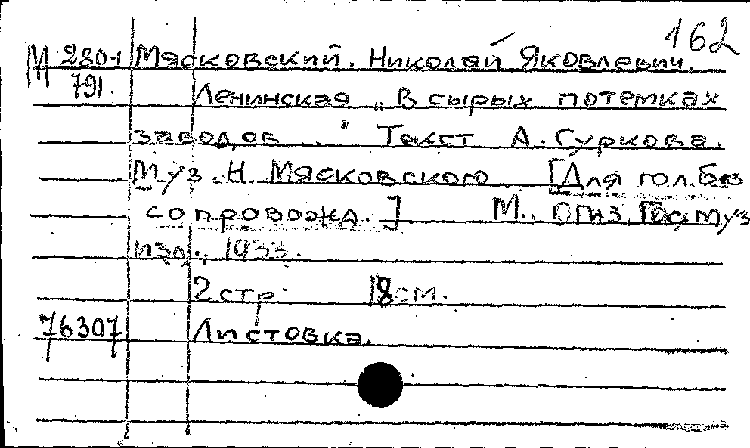 162
М 280-1 Мясковский. Николай Яковлевич.
791. Ленинская „В сырых потемках
заводов..." Текст А. Суркова.
Муз. Н. Мясковского [Для гол. без
сопровожд.] М., Огиз, Гос. муз
изд., 1933.
2 стр. 18 см.
76307 Листовка.